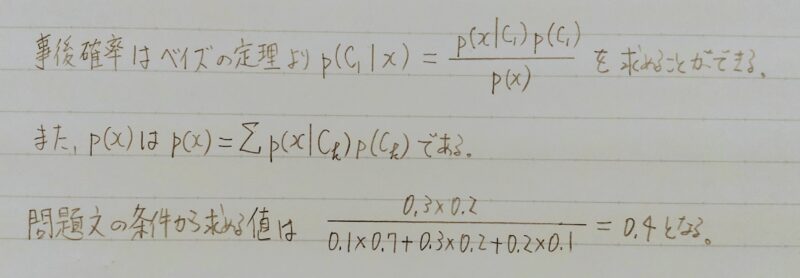 事後確率はベイズの定理より p(C₁|x) = p(x|C₁)p(C₁) / p(x) を求めることができる。
また、p(x)は p(x) = Σ p(x|Cₖ)p(Cₖ) である。
問題文の条件から求める値は 0.3×0.2 / 0.1×0.7+0.3×0.2+0.2×0.1 = 0.4 となる。